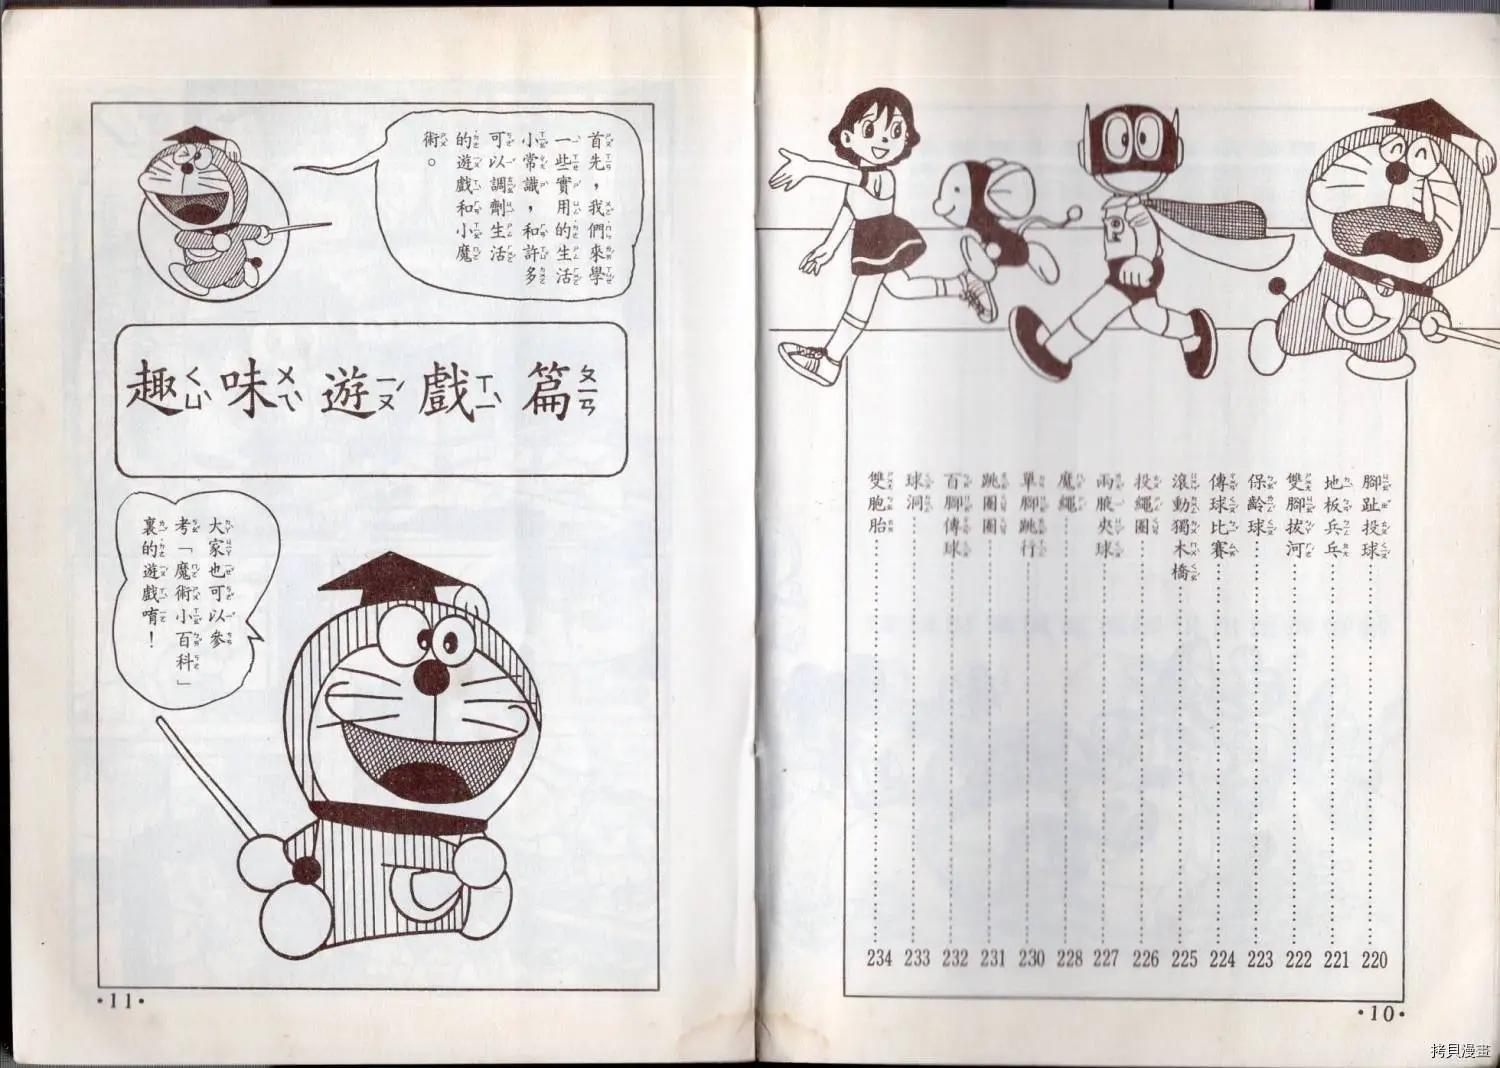 腳趾投球……220
地板乒乓……221
雙腳拔河……222
保齡球……223
傳球比賽……224
滾動獨木橋……225
投繩圈……226
兩腋夾球……227
魔繩……228
單腳跳行……230
跳圈圈……231
百腳傳球……232
球洞……233
雙胞胎……234
•10•
首先，我們來學
一些實用的生活
小常識，和許多
可以調劑生活
的遊戲和小魔
術。
趣味遊戲篇
大家也可以參
考「魔術小百科」
裏的遊戲唷！
•11•
拷貝漫畫